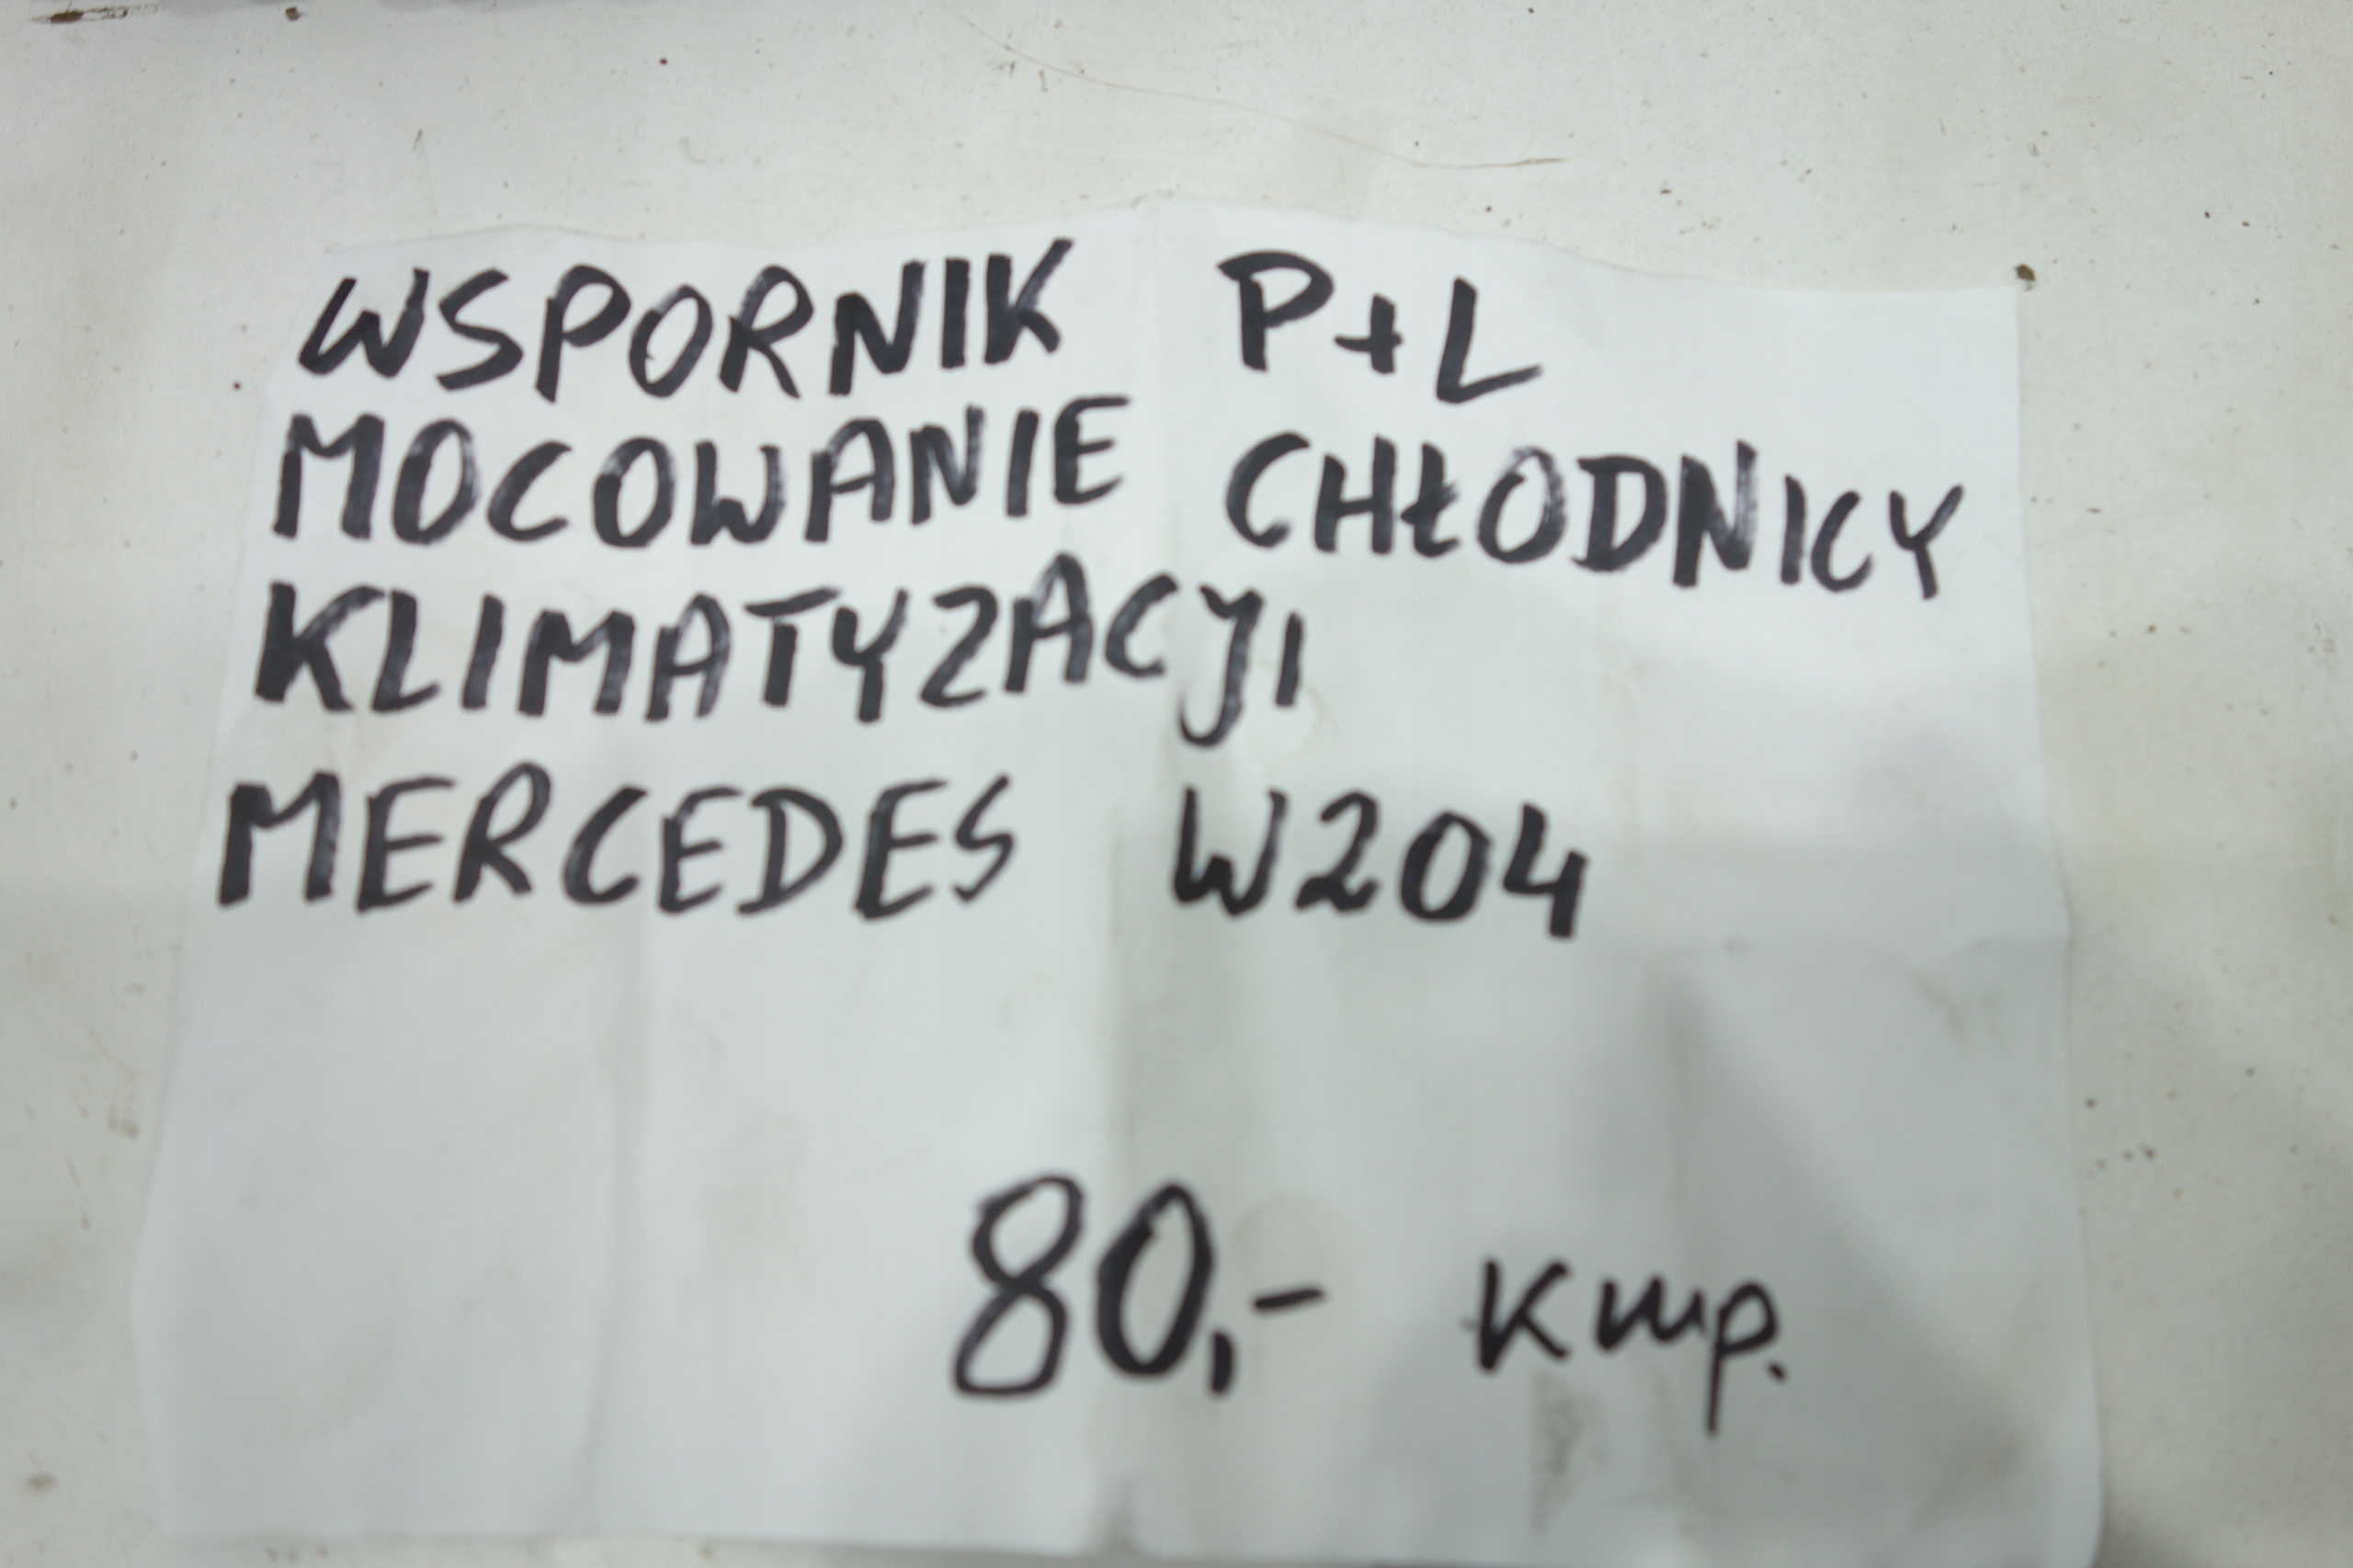 WSPORNIK P+L
MOCOWANIE CHŁODNICY
KLIMATYZACJI
MERCEDES W204
80,- Kmp.